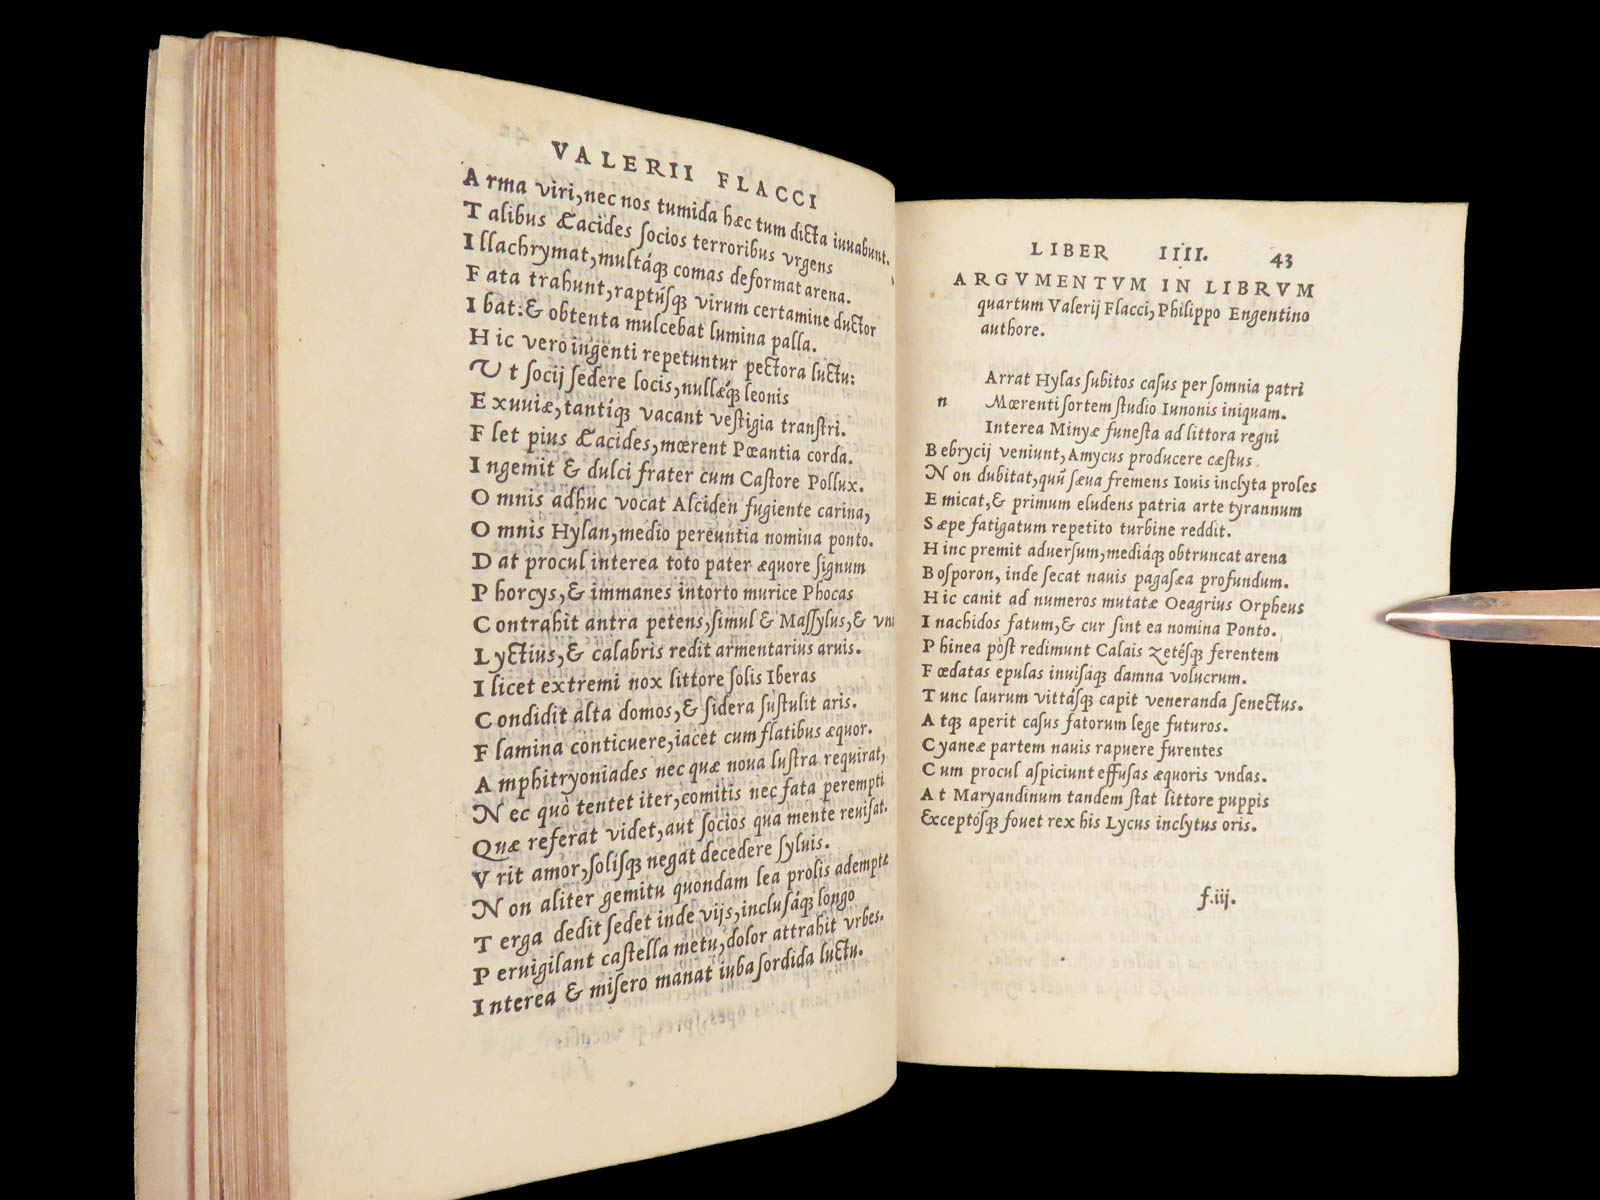 VALERII FLACCI
Arma viri, nec nos tumida hæc tum dicta iuuabunt.
Talibus Æacides ſocios terroribus vrgens
Illachrymat, multáq; comas deformat arena.
Fata trahunt, raptúſq; virum certamine ductor
Ibat: & obtenta mulcebat lumina palla.
Hic vero ingenti repetuntur pectora luctu:
Ut ſocij ſedere locis, nullǽq; leonis
Exuuiæ, tantíq; vacant veſtigia tranſtri.
Flet pius Æacides, mœrent Pœantia corda.
Ingemit & dulci frater cum Caſtore Pollux.
Omnis adhuc vocat Alciden fugiente carina,
Omnis Hylan, medio pereuntia nomina ponto.
Dat procul interea toto pater æquore ſignum
Phorcys, & immanes intorto murice Phocas
Contrahit antra petens, ſimul & Maſſylus, & vn
Lyctius, & calabris redit armentarius aruis.
Ilicet extremi nox littore ſolis Iberas
Condidit alta domos, & ſidera ſuſtulit aris.
Flamina conticuere, iacet cum flatibus æquor.
Amphitryoniades nec quæ noua luſtra requirat,
Nec quò tentet iter, comitis nec fata perempti
Quæ referat videt, aut ſocios qua mente reuiſat.
Vrit amor, ſoliſq; negat decedere ſyluis.
Non aliter gemitu quondam lea prolis ademptæ
Terga dedit ſedet inde vijs, incluſáq; longo
Peruigilant caſtella metu, dolor attrahit vrbes.
Interea & miſero manat iuba ſordida luctu.
LIBER IIII. 43
ARGVMENTVM IN LIBRVM
quartum Valerij Flacci, Philippo Engentino
authore.
n Arrat Hylas ſubitos caſus per ſomnia patri
Mœrenti ſortem ſtudio Iunonis iniquam.
Interea Minyæ funeſta ad littora regni
Bebrycij veniunt, Amycus producere cæſtus.
Non dubitat, quū ſæua fremens Iouis inclyta proles
Emicat, & primum eludens patria arte tyrannum
Sæpe fatigatum repetito turbine reddit.
Hinc premit aduerſum, mediáq; obtruncat arena
Boſporon, inde ſecat nauis pagaſæa profundum.
Hic canit ad numeros mutatæ Oeagrius Orpheus
Inachidos fatum, & cur ſint ea nomina Ponto.
Phinea pòſt redimunt Calais zetéſq; ferentem
Fœdatas epulas inuiſaq; damna volucrum.
Tunc laurum vittáſq; capit veneranda ſenectus.
Atq; aperit caſus fatorum lege futuros.
Cyaneæ partem nauis rapuere furentes
Cum procul aſpiciunt effuſas æquoris vndas.
At Maryandinum tandem ſtat littore puppis
Exceptóſq; fouet rex his Lycus inclytus oris.
f.iij.